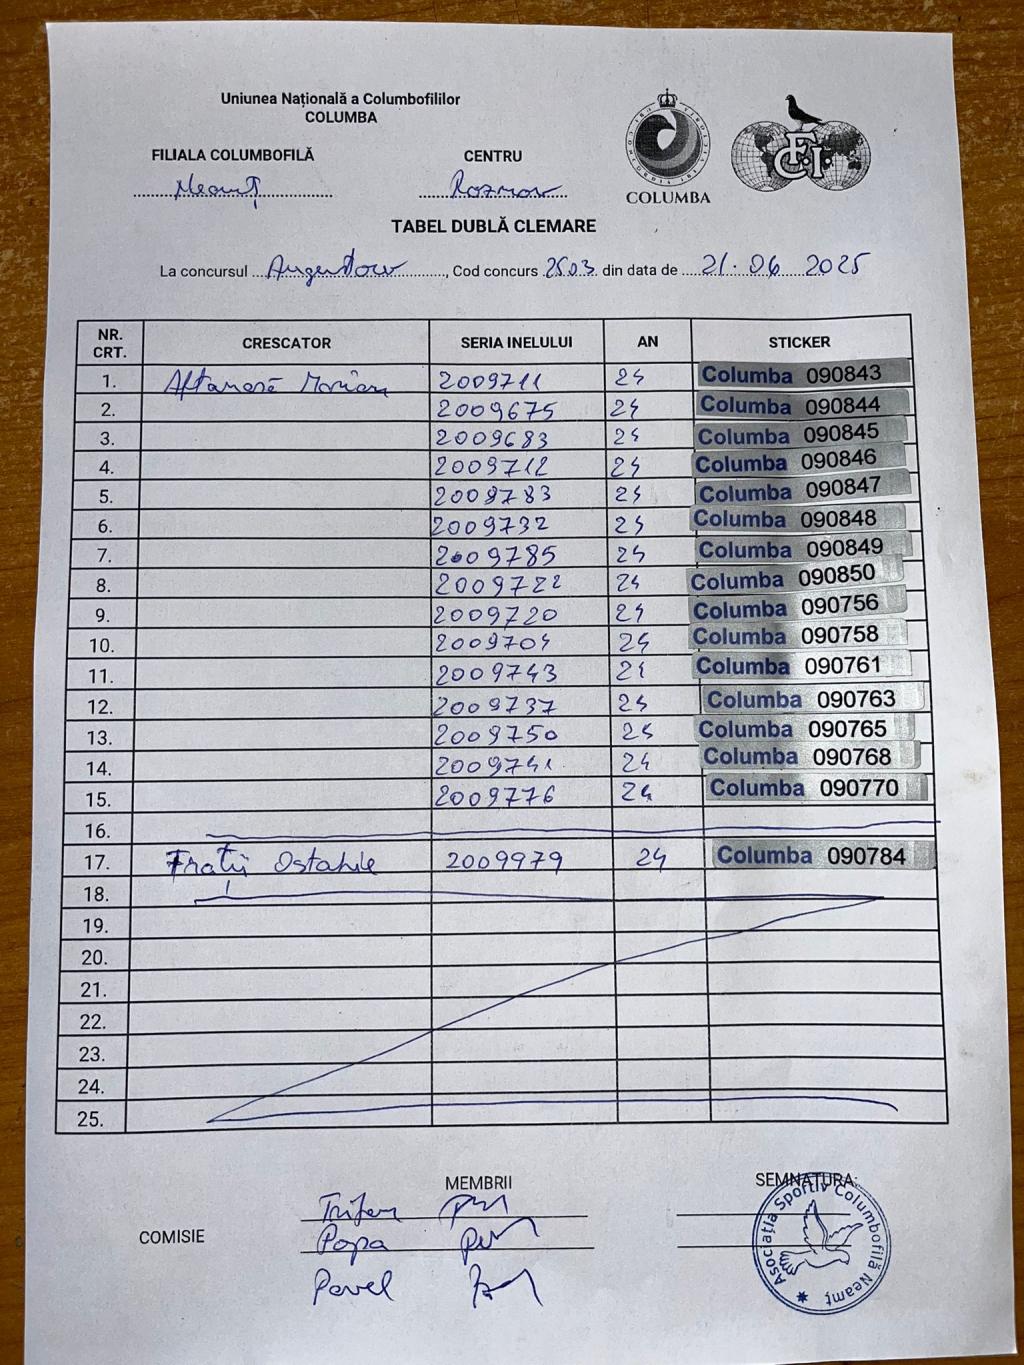 Uniunea Națională a Columbofililor
COLUMBA
FILIALA COLUMBOFILĂ CENTRU
Neamț Roznov
COLUMBA
TABEL DUBLĂ CLEMARE
La concursul Augustow, Cod concurs 2503 din data de 21.06 2025
NR. CRT. CRESCATOR SERIA INELULUI AN STICKER
1. Aftanasă Marian 2009711 24 Columba 090843
2. 2009675 24 Columba 090844
3. 2009683 24 Columba 090845
4. 2009712 24 Columba 090846
5. 2009783 24 Columba 090847
6. 2009732 24 Columba 090848
7. 2009785 24 Columba 090849
8. 2009722 24 Columba 090850
9. 2009720 24 Columba 090756
10. 2009704 24 Columba 090758
11. 2009743 24 Columba 090761
12. 2009737 24 Columba 090763
13. 2009750 24 Columba 090765
14. 2009741 24 Columba 090768
15. 2009776 24 Columba 090770
16.
17. Frații Ostahie 2009979 24 Columba 090784
18.
19.
20.
21.
22.
23.
24.
25.
MEMBRII SEMNATURA:
COMISIE
Trifan
Popa
Pavel
Asociația Sportiv Columbofilă Neamț